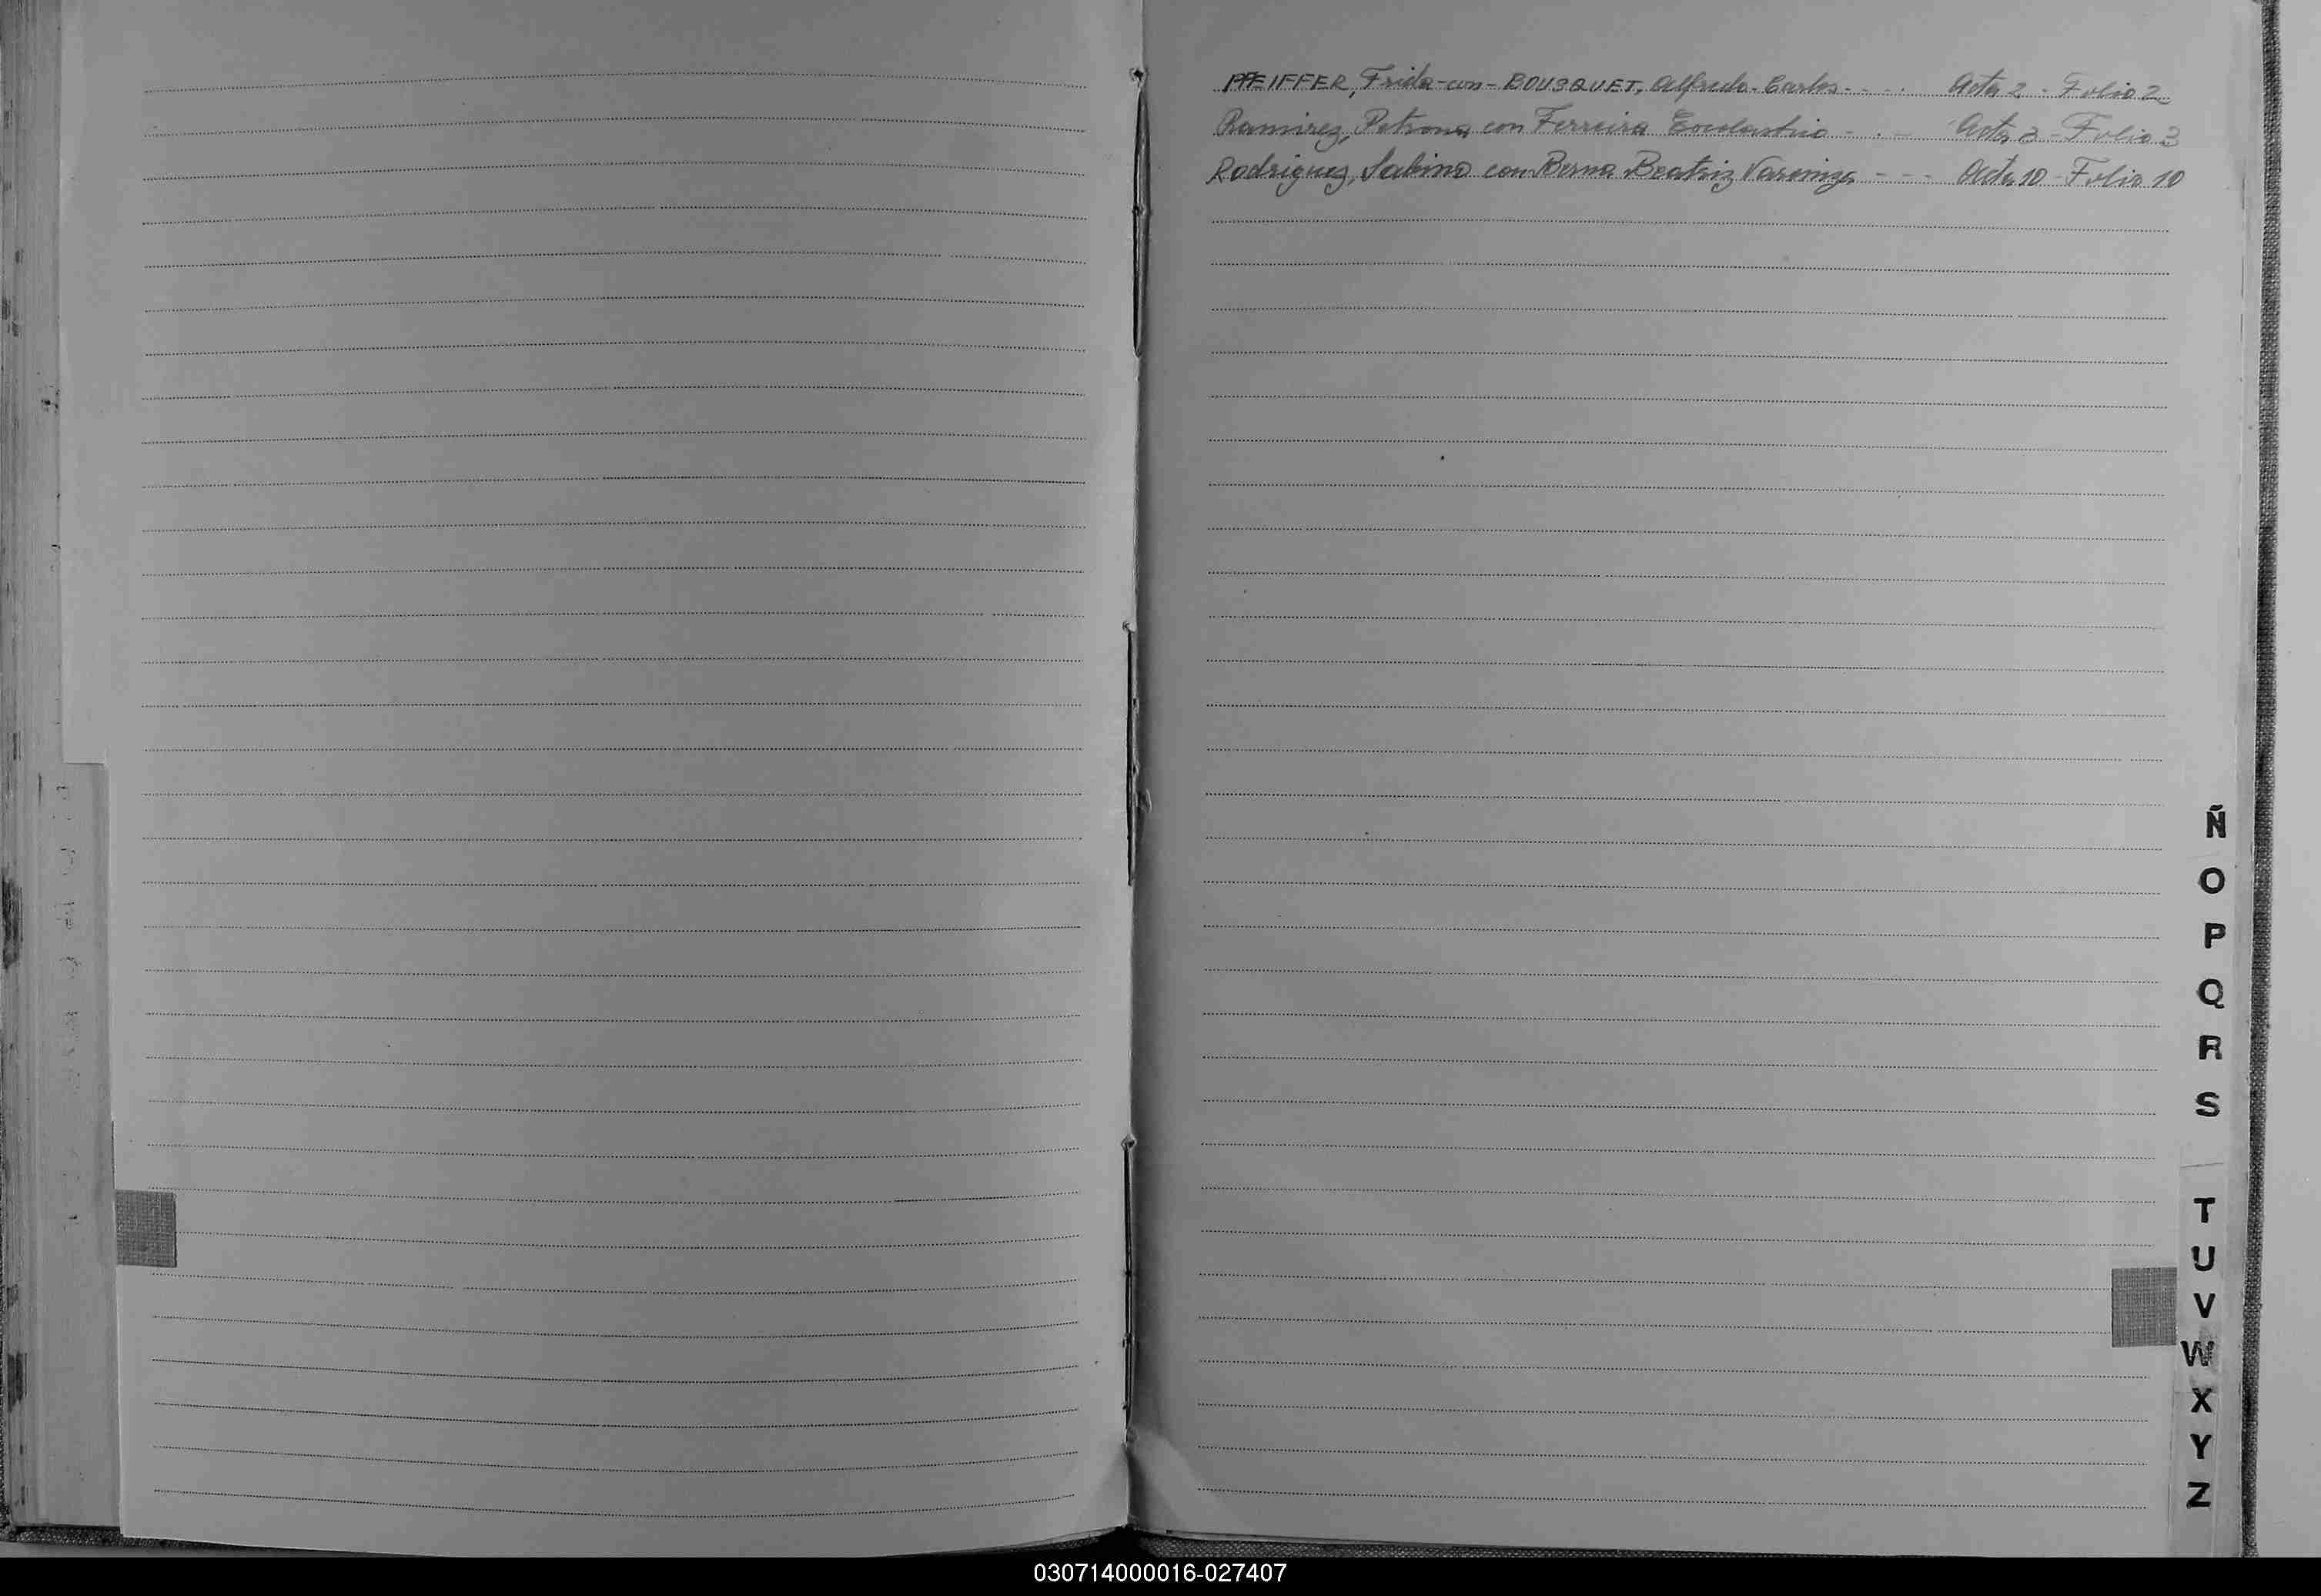 PFEIFFER, Frida - con - BOUSQUET, Alfredo - Carlos - - - - - Acta 2 - Folio 2
Ramirez, Petrona con Ferreira Escolastico - . - Acta 3 - Folio 3
Rodriguez, Sabino con Berna Beatriz - - - Acta 10 - Folio 10
Ñ
O
P
Q
R
S
T
U
V
W
X
Y
Z
030714000016-027407